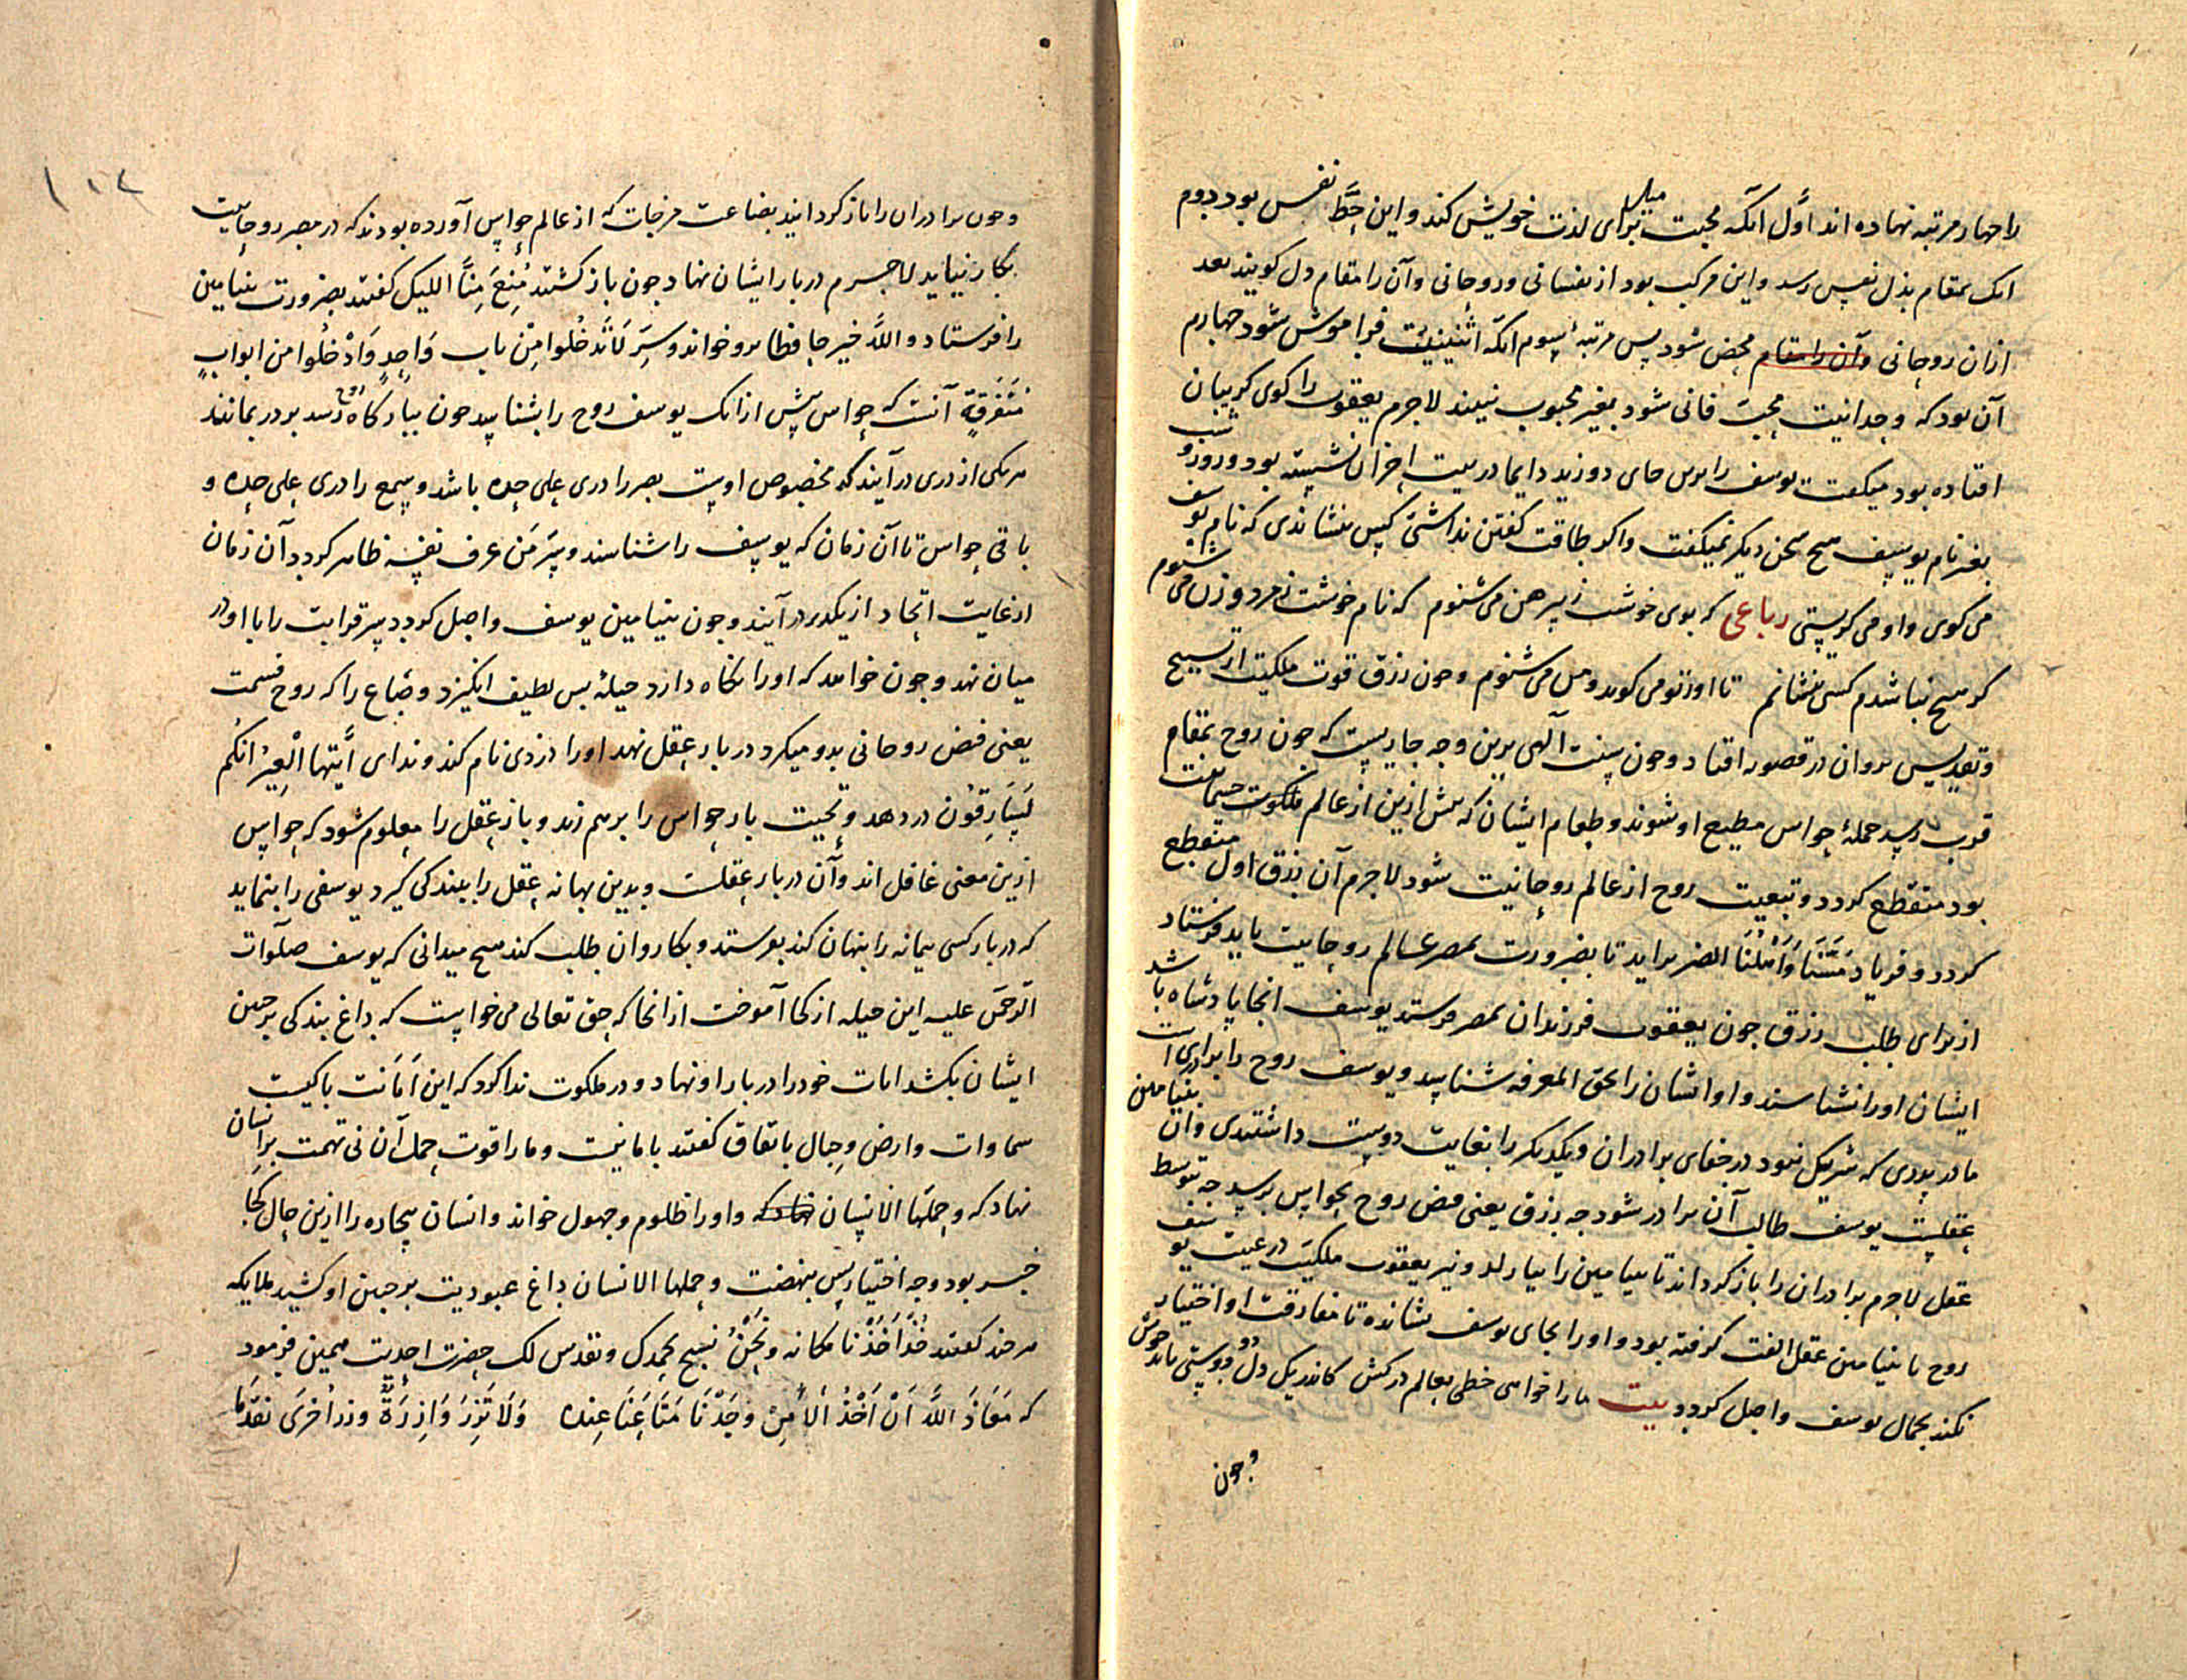 را چهار مرتبه نهاده اند اوّل آنکه محبت میل برای لذت خویش کند و این حظّ نفس بود دوم
انک بمقام بذل نفس رسد و این مرکب بود از نفسانی و روحانی و آن را مقام دل کویند بعد
ازان روحانی وآن را مقام محض شود پس مرتبۀ سوم انکه اثنینیت فراموش شود چهارم
آن بود که وحدانیت محبّ فانی شود بغیر محبوب نبیند لاجرم یعقوب را کوی کریبان
افتاده بود میکفت یوسف را برین جای دوزید دایما در بیت احزان نشسته بود و روز و شب
بغیر نام یوسف هیچ سخن دیکر نمیکفت واکر طاقت کفتن نداشتی کس بنشاندی که نام یوسف
می کوی و او می کریستی رباعی کر بوی خوشت ز پیرهن می شنوم که نام خوشت ز مرد و زن می شنوم
کر هیچ نباشدم کسی بنشانم تا او ز تو می کوید و من می شنوم و چون رزق قوت ملکیت از تسبیح
وتقدیس بروان در قصور افتاد و چون سنت آلهی برین وجه جاریست که چون روح بمقام
قرب رسد جملۀ حواس مطیع او شوند و طعام ایشان که پیش ازین از عالم ملکوت جسمانیت
بود منقطع کردد و تبعیت روح از عالم روحانیت شود لاجرم آن رزق اول منقطع
کردد و فریاد مَسَّنَا وَاَهْلَنَا الضر براید تا بضرورت بمصر عالم روحانیت باید فرستاد
از برای طلب رزق چون یعقوب فرزندان بمصر فرستد یوسف انجا پادشاه باشد
ایشان او را نشناسند و او ایشان را بحق المعرفه شناسد و یوسف روح را برادری است
مادر پدری که شریک نبود در جفای برادران و یکدیکر را بغایت دوست داشتندی وآن بنیامین
عقلست یوسف طالب آن برادر شود چه رزق یعنی فیض روح بحواس برسد چه بتوسط
عقل لاجرم برادران را باز کرداند تا بنیامین را بیارند و نیز یعقوب ملکیت در غیبت یوسف
روح با بنیامین عقل الفت کرفته بود و او را بجای یوسف نشانده تا مفارقت او اختیار
نکند بجمال یوسف واصل کردد بیت ما را خواهی خطی بعالم درکش کاندر یک دل دو دوستی ناید خوش
و چون
وچون برادران را باز کردانید بضاعت مزجات که از عالم حواس آورده بودند که در مصر روحانیت
بکار نیاید لاجرم در بار ایشان نهاد چون باز کشتند مُنِعَ مِنَّا الکیل کفتند بضرورت بنیامین
را فرستاد و اللّه خیر حافظا برو خواند و سرّ لَاتَدْخُلوا مِنْ باب وَاحِدٍ وَادْخُلوا من ابوابٍ
مُتَفَرِقَةٍ آنست که حواس پیش ازانک یوسف روح را بشناسد چون ببارکاه روح رسد بر در بمانند
هر یکی از دری درآیند که مخصوص اوست بصر را دری علی حده باشد و سمع را دری علی حده و
باقی حواس تا آن زمان که یوسف را شناسند و سرّ مَن عرف نفسه ظاهر کردد آن زمان
از غایت اتحاد از یکدر درآیند و چون بنیامین یوسف واصل کردد سر قرابت را با او در
میان نهد و چون خواهد که او را نکاه دارد حیلۀ بس لطیف انکیزد و صاع را که روح قسمت
یعنی فیض روحانی بدو میکرد در بار عقل نهد او را دزدی نام کند و ندای اَیَّتها الْعِیرُ انکُم
لَسَارِقوُن در دهد و بحیت بار حواس را برهم زند و باز عقل را معلوم شود که حواس
ازین معنی غافل اند وآن در بار عقلست و بدین بهانه عقل را ببندکی کیرد یوسفی را بنماید
که در بار کسی پیمانه را پنهان کند بفرستد و بکاروان طلب کند هیچ میدانی که یوسف صلوات
الرحمن علیه این حیله از کجا آموخت ازانجا که حق تعالی می خواست که داغ بندکی بر جبین
ایشان بکشد امانت خود را در بار او نهاد و در ملکوت ندا کرد که این اَمَانت با کیست
سماوات و ارض و جبال باتفاق کفتند با ما نیست و ما را قوت حمل آن نی تهمت بر انسان
نهاد که و حملها الانسان نهاد که و او را ظلوم و جهول خواند و انسان بیچاره را ازین حال کجا
خبر بود و چه اختیارس بنهضت و حملها الانسان داغ عبودیت بر جبین او کشید ملایکه
هر چند کفتند خُذْ اَحَدَنا مکانه ونَحْنُ نسبح بحمدک ونقدس لک حضرت احدیت مهیمن فرمود
که مَعَاذَ اللّه اَنْ نَاْخُذَ اِلّا مَنْ وَجَدْنَا مَتَاعَنَا عِنده وَلَا تَزِرُ وَازِرَةٌ وزر اُخرَی نقد ما
۱۱۲